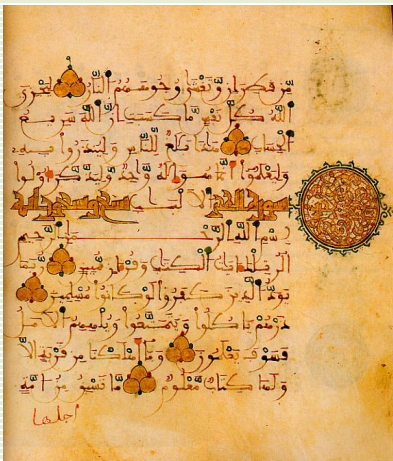 مِّن قَطِرَانٍ وَتَغْشَىٰ وُجُوهَهُمُ النَّارُ لِيَجْزِيَ
اللَّهُ كُلَّ نَفْسٍ مَّا كَسَبَتْ إِنَّ اللَّهَ سَرِيعُ
الْحِسَابِ هَٰذَا بَلَٰغٌ لِّلنَّاسِ وَلِيُنذَرُوا بِهِ
وَلِيَعْلَمُوا أَنَّمَا هُوَ إِلَٰهٌ وَٰحِدٌ وَلِيَذَّكَّرَ أُولُوا
سورة الحجر الْأَلْبَٰبِ تسع وتسعون آية
بِسْمِ اللَّهِ الرَّحْمَٰنِ الرَّحِيمِ
الر تِلْكَ ءَايَٰتُ الْكِتَٰبِ وَقُرْءَانٍ مُّبِينٍ رُّبَمَا
يَوَدُّ الَّذِينَ كَفَرُوا لَوْ كَانُوا مُسْلِمِينَ
ذَرْهُمْ يَاكُلُوا وَيَتَمَتَّعُوا وَيُلْهِهِمُ الْأَمَلُ
فَسَوْفَ يَعْلَمُونَ وَمَا أَهْلَكْنَا مِن قَرْيَةٍ إِلَّا
وَلَهَا كِتَابٌ مَّعْلُومٌ مَّا تَسْبِقُ مِنْ أُمَّةٍ
اجلها